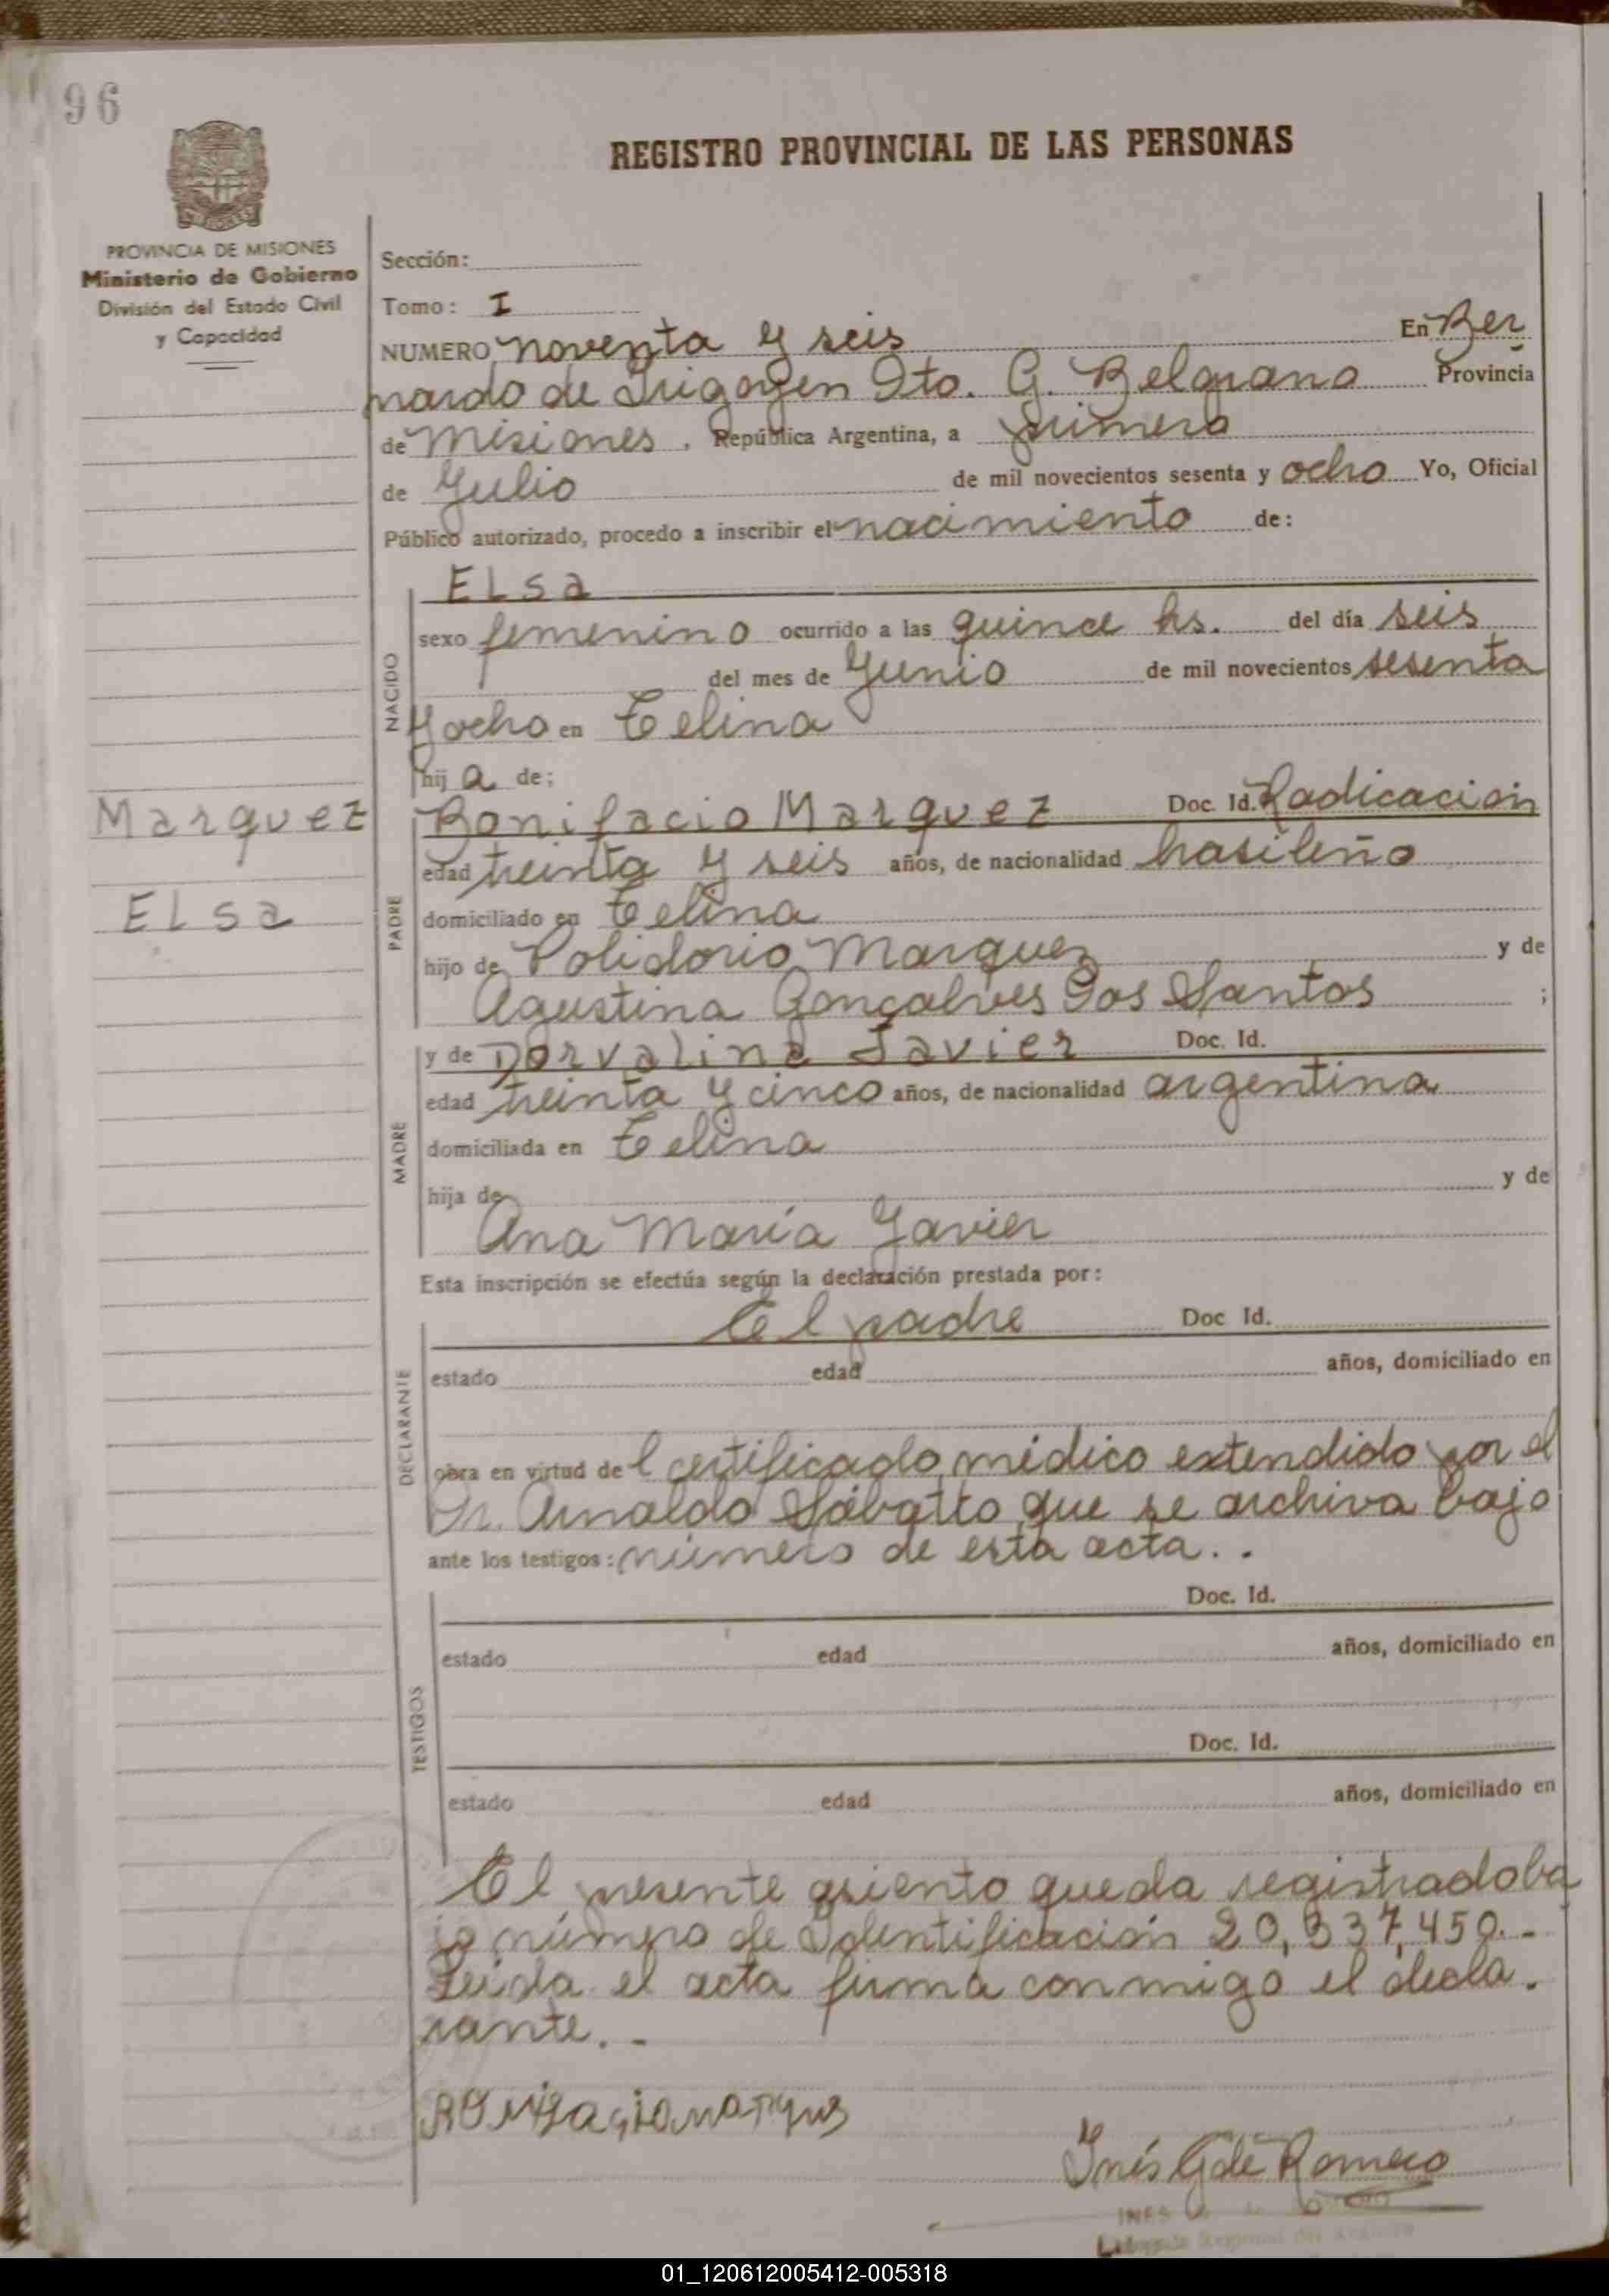 96
REGISTRO PROVINCIAL DE LAS PERSONAS
PROVINCIA DE MISIONES
Ministerio de Gobierno
División del Estado Civil
y Capacidad
Sección:
Tomo: I
NUMERO noventa y seis En Ber
nardo de Irigoyen Dto. G. Belgrano Provincia
de Misiones, República Argentina, a primero
de Julio de mil novecientos sesenta y ocho Yo, Oficial
Público autorizado, procedo a inscribir el nacimiento de:
NACIDO
ELsa
sexo femenino ocurrido a las quince hs. del día seis
del mes de Junio de mil novecientos sesenta
y ocho en Celina
hij a de:
Marquez
Elsa
PADRE
Bonifacio Marquez Doc. Id. Radicación
edad treinta y seis años, de nacionalidad brasileño
domiciliado en Celina
hijo de Polidorio Marquez y de
Agustina Gonçalves Dos Santos ;
MADRE
y de Dorvalina Javier Doc. Id.
edad treinta y cinco años, de nacionalidad argentina
domiciliada en Celina
hija de y de
Ana María Javier
Esta inscripción se efectúa según la declaración prestada por:
DECLARANTE
El padre Doc Id.
estado edad años, domiciliado en
obra en virtud del certificado médico extendido por el
Dr. Arnaldo Sábatto que se archiva bajo
ante los testigos: número de esta acta..
TESTIGOS
Doc. Id.
estado edad años, domiciliado en
Doc. Id.
estado edad años, domiciliado en
El presente asiento queda registrado ba
jo número de Identificación 20,337,450.-
Leída el acta firma conmigo el decla.
rante.-
Inés G de Romero
INES
01_120612005412-005318